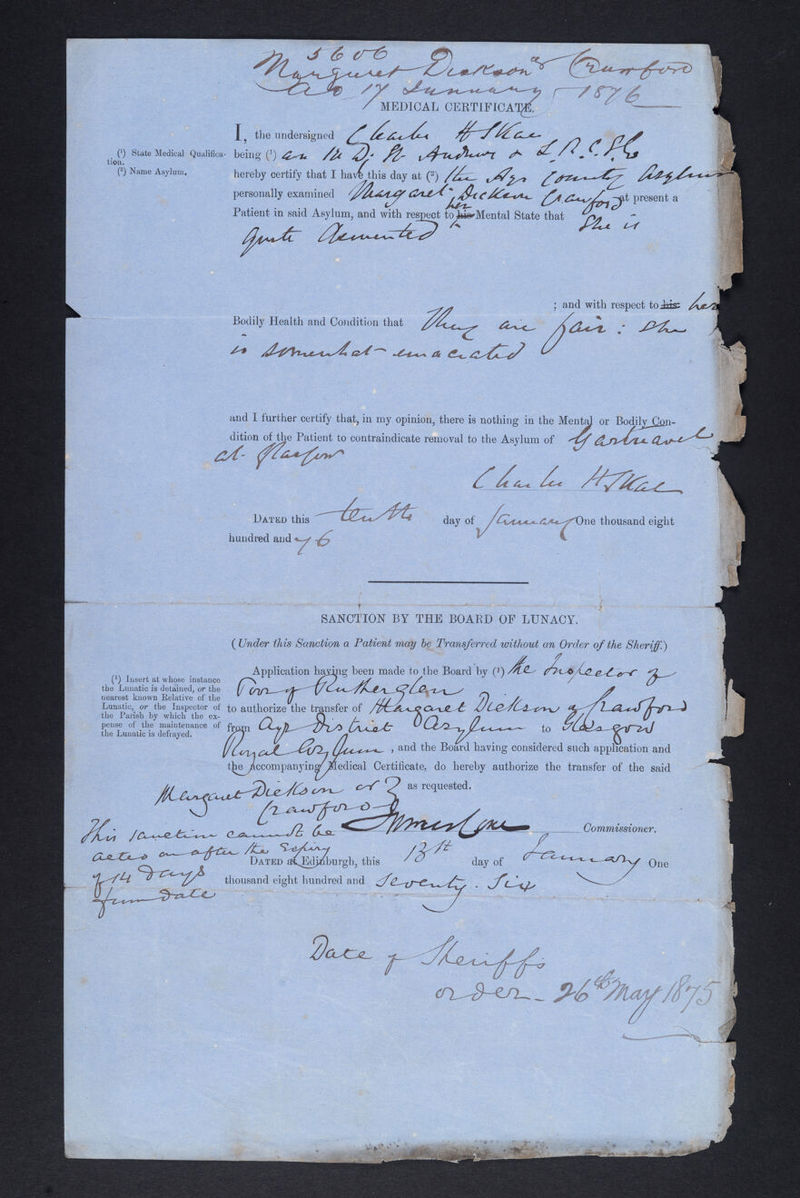 5606
Margaret Dickson or Crawford
Ad 17 January 1876
MEDICAL CERTIFICATE.
I, the undersigned Charles H Skae
(¹) State Medical Qualifica-
tion.
being (¹) an M D. St. Andrews & L. R. C. S. Ed
(²) Name Asylum.
hereby certify that I have this day at (²) the Ayr County Asylum
personally examined Margaret Dickson Crawford at present a
Patient in said Asylum, and with respect to his her Mental State that She is
quite demented
; and with respect to his her
Bodily Health and Condition that they are fair: she
is somewhat emaciated
and I further certify that, in my opinion, there is nothing in the Mental or Bodily Con-
dition of the Patient to contraindicate removal to the Asylum of Gartnavel
at Glasgow
Charles H Skae
DATED this tenth day of January One thousand eight
hundred and 76
SANCTION BY THE BOARD OF LUNACY.
(Under this Sanction a Patient may be Transferred without an Order of the Sheriff.)
(¹) Insert at whose instance
the Lunatic is detained, or the
nearest known Relative of the
Lunatic, or the Inspector of
the Parish by which the ex-
pense of the maintenance of
the Lunatic is defrayed.
Application having been made to the Board by (¹) the Inspector of
Poor of Rutherglen
to authorize the transfer of Margaret Dickson or Crawford
from Ayr District Asylum to Glasgow
Royal Asylum, and the Board having considered such application and
the accompanying Medical Certificate, do hereby authorize the transfer of the said
Margaret Dickson or Crawford as requested.
Commissioner.
This sanction cannot be
acted on after the Expiry
of 14 Days
from date
DATED at Edinburgh, this 13th day of January One
thousand eight hundred and Seventy. Six
Date of Sheriff's
order - 26th May 1875